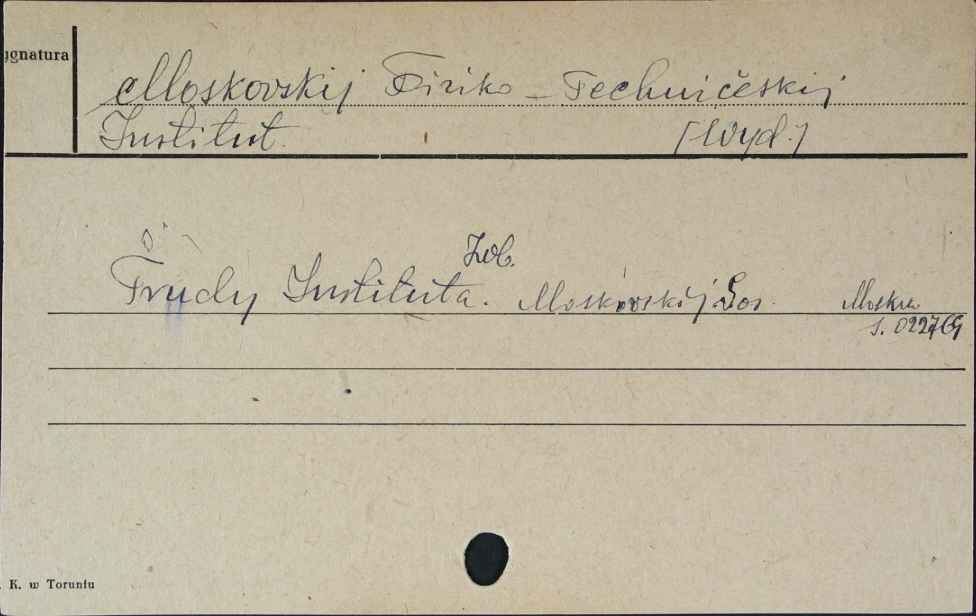 ygnatura
Moskovskij Fiziko-Techničeskij
Institut. [Wyd.]
Zob.
Trudy Instituta. Moskovskij Gos. Moskva
S. 022769
K. w Toruniu